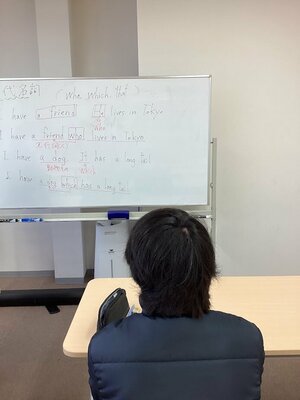 代名詞
( who which that )
I have a friend He lives in Tokyo
who
I have a friend who lives in Tokyo
I have a dog It has a long tail
which
I have a dog which has a long tail